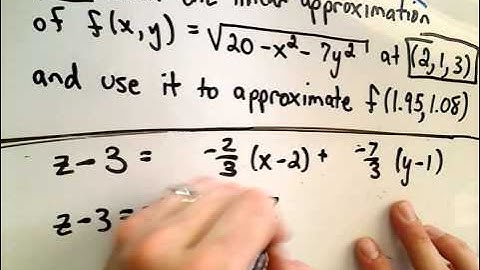 the linear approximation
of f(x,y) = √(20 - x² - 7y²) at (2,1,3)
and use it to approximate f(1.95,1.08)
z - 3 = -2/3 (x-2) + -7/3 (y-1)
z - 3 =